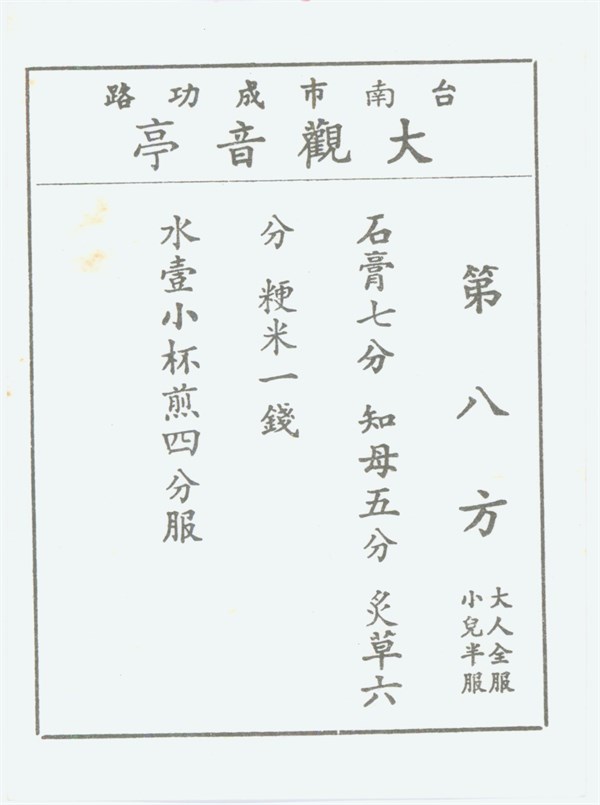 台南市成功路
大觀音亭
第八方
大人全服
小兒半服
石膏七分 知母五分 炙草六
分 粳米一錢
水壹小杯煎四分服